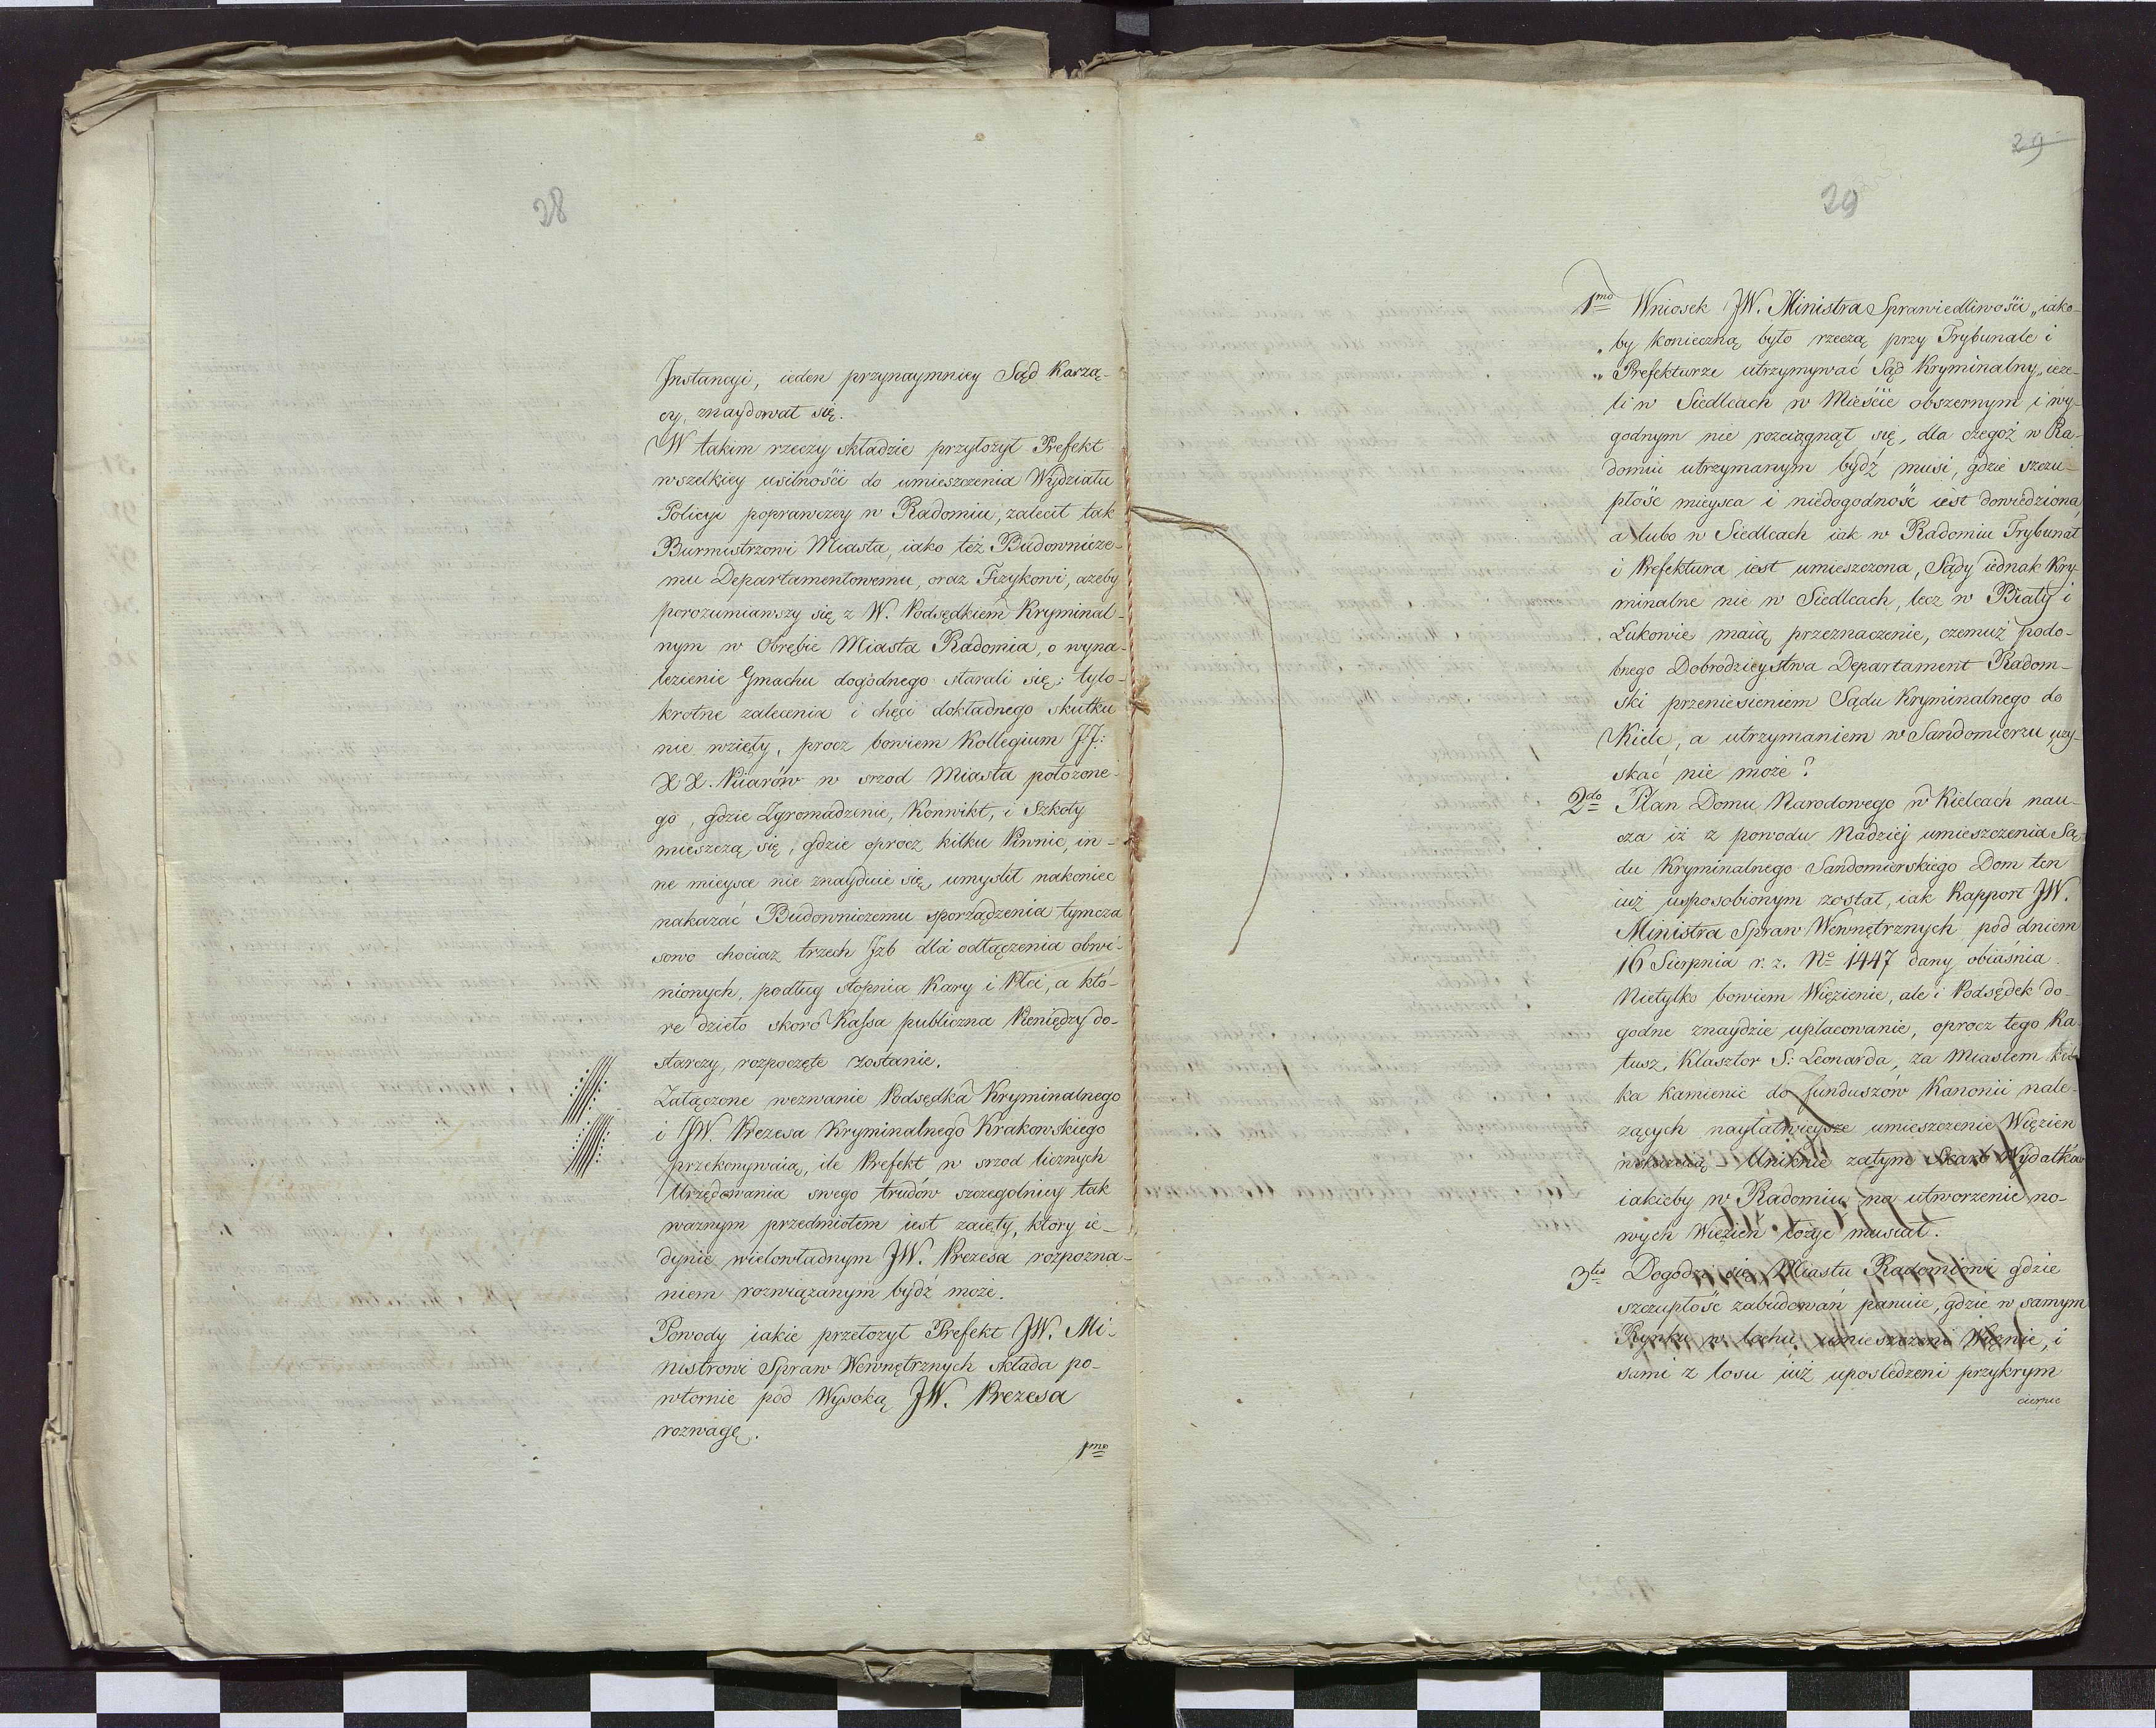 28
Instancyi, ieden przynaymniey Sąd Karzą-
cy, znaydował się.
W takim rzeczy składzie przyłożył Prefekt
wszelkiey usilności do umieszczenia Wydziału
Policyi poprawczey w Radomiu, zalecił tak
Burmistrzowi Miasta, iako też Budownicze-
mu Departamentowemu, oraz Fizykowi, ażeby
porozumiawszy się z W. Podsędkiem Kryminal-
nym w Obrębie Miasta Radomia, o wyna-
lezienie Gmachu dogodnego starali się; tylo-
krotne zalecenia i chęci dokładnego skutku
nie wzięły, procz bowiem Kollegium JJ:
XX. Piiarów w srzod Miasta położone-
go, gdzie Zgromadzenie, Konwikt, i Szkoły
mieszczą się, gdzie oprocz kilku Piwnic, in-
ne mieysce nie znayduie się, umyslił nakoniec
nakazać Budowniczemu sporządzenia tymcza
sowo chociaz trzech Jzb dla odłączenia obwi-
nionych, podług stopnia Kary i Płci, a któ-
re dzieło skoro Kassa publiczna Pieniędzy do-
starczy, rozpoczęte zostanie.
Załączone wezwanie Podsędka Kryminalnego
i JW. Prezesa Kryminalnego Krakowskiego
przekonywaią, ile Prefekt w srzod licznych
Urzędowania swego trudów szczegolniey tak
ważnym przedmiotem iest zaięty, który ie-
dynie wielowładnym JW. Prezesa rozpozna-
niem rozwiązanym bydź może.
Powody iakie przełozył Prefekt JW. Mi-
nistrowi Spraw Wewnętrznych składa po-
wtornie pod Wysoką JW. Prezesa
rozwagę.
1mo
29
29
1mo Wniosek JW. Ministra Sprawiedliwości „iako-
„by konieczną było rzeczą przy Trybunale i
„Prefekturze utrzymywać Sąd Kryminalny„ ieże-
li w Siedlcach w Mieście obszernym i wy-
godnym nie rozciągnął się, dla czegoż w Ra-
domiu utrzymanym bydź musi, gdzie szczu-
płość mieysca i niedogodność iest dowiedziona,
a lubo w Siedlcach iak w Radomiu Trybunał
i Prefektura iest umieszczona, Sądy iednak Kry-
minalne nie w Siedlcach, lecz w Biały i
Łukowie maią przeznaczenie, czemuż podo-
bnego Dobrodzieystwa Departament Radom-
ski przeniesieniem Sądu Kryminalnego do
Kielc, a utrzymaniem w Sandomierzu uzy-
skać nie może?
2do Plan Domu Narodowego w Kielcach nau-
cza iż z powodu Nadziej umieszczenia Są-
du Kryminalnego Sandomierskiego Dom ten
iuż usposobionym został, iak Rapport JW.
Ministra Spraw Wewnętrznych pod dniem
16 Sierpnia r. z. No 1447 dany obiaśnia.
Nietylko bowiem Więzienie, ale i Podsędek do-
godne znaydzie uplacowanie, oprocz tego Ra-
tusz, Klasztor S: Leonarda, za Miastem kil-
ka Kamienic do funduszów Kanonii nale-
zących nayłatwieysze umieszczenie Więzien
Uniknie zatym Skarb Wydatków
iakieby w Radomiu na utworzenie no-
wych Więzień łożyć musiał.
3tio Dogodzi się Miastu Radomiowi gdzie
szczupłość zabudowań panuie, gdzie w samym
Rynku w lochu umieszczeni Więznie, i
sami z losu iuż uposledzeni przykrym
cierpie